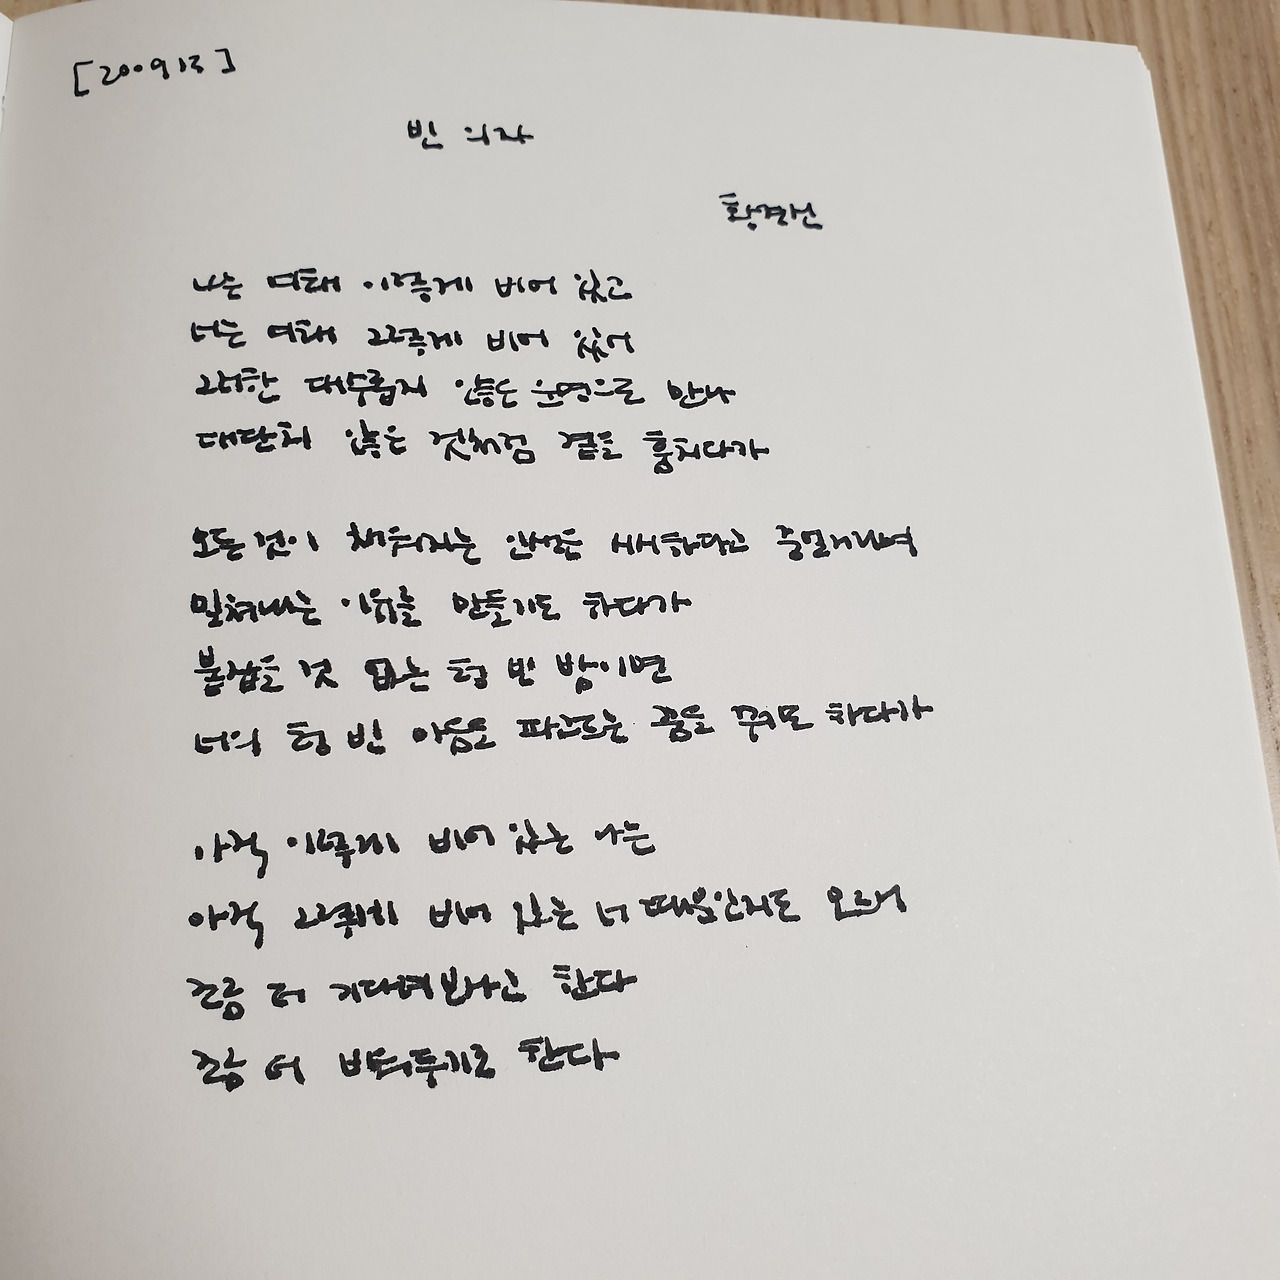 [200913]
빈 의자
황경신
나는 여태 이렇게 비어 있고
너는 여태 그렇게 비어 있어
그러한 대수롭지 않은 운명으로 만나
대단치 않은 것처럼 곁을 훔치다가
모든 것이 채워지는 인생은 시시하다고 중얼거리며
밀쳐내는 이유를 만들기도 하다가
붙잡을 것 없는 텅 빈 밤이면
너의 텅 빈 마음을 파고드는 꿈을 꾸기도 하다가
아직 이렇게 비어 있는 나는
아직 그렇게 비어 있는 너 때문인지도 모르니
조금 더 기다려보자고 한다
조금 더 비워두기로 한다